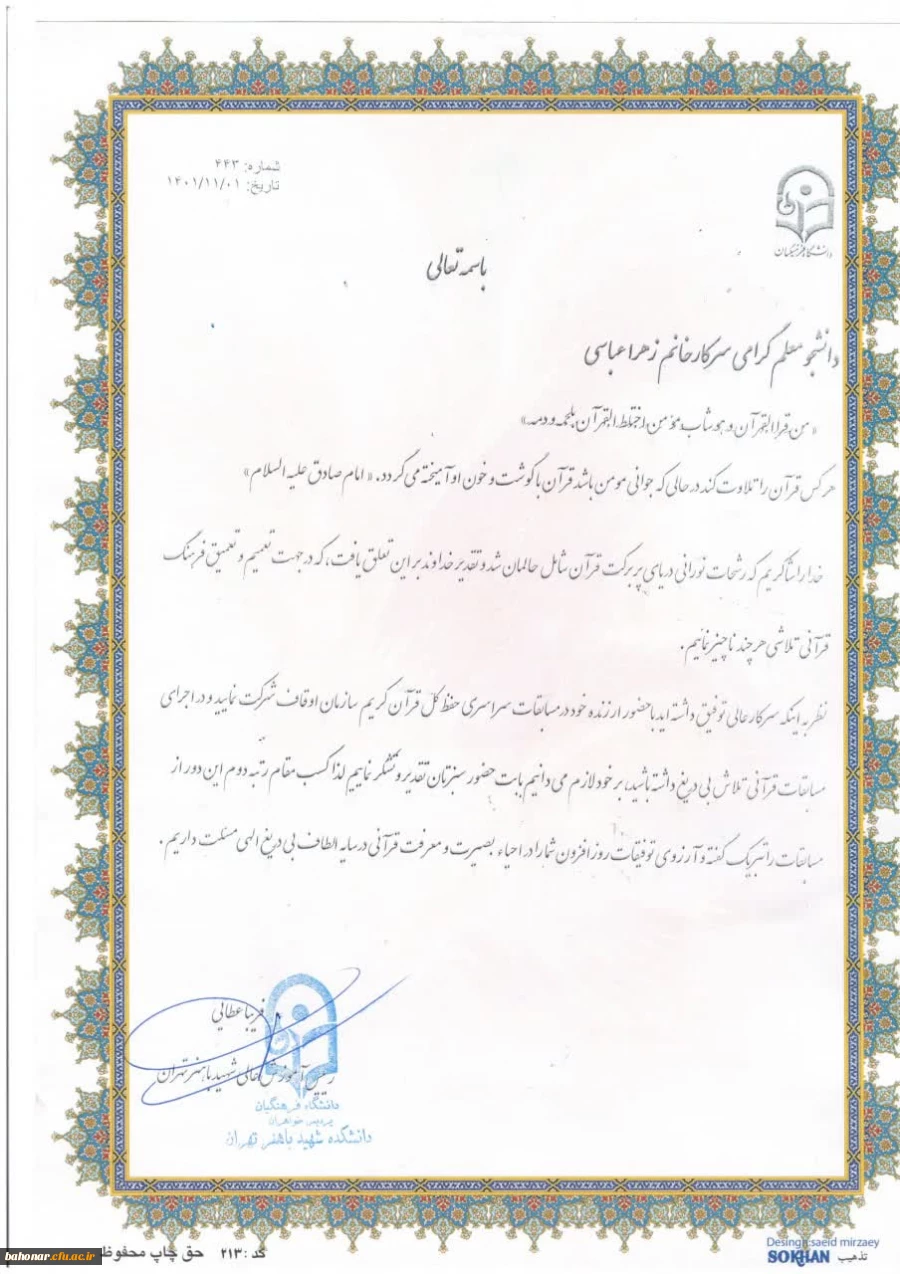 شماره: ۴۴۳
تاریخ: ۱۴۰۱/۱۱/۰۱
دانشگاه فرهنگیان
باسمه تعالی
دانشجو معلم گرامی سرکار خانم زهرا عباسی
« من قرا القرآن و هو شاب مؤمن اختلط القرآن بلحمه و دمه »
هر کس قرآن را تلاوت کند در حالی که جوانی مومن باشد قرآن با گوشت و خون او آمیخته می گردد. « امام صادق علیه السلام »
خدا را شاکریم که رشحات نورانی دریای پر برکت قرآن شامل حالمان شد و تقدیر خداوند بر این تعلق یافت، که در جهت تعمیم و تعمیق فرهنگ
قرآنی تلاشی هر چند ناچیز نماییم.
نظر به اینکه سرکار عالی توفیق داشته اید با حضور ارزنده خود در مسابقات سراسری حفظ کل قرآن کریم سازمان اوقاف شرکت نمایید و در اجرای
مسابقات قرآنی تلاش بی دریغ داشته باشید، بر خود لازم می دانیم بابت حضور سبزتان تقدیر و تشکر نماییم لذا کسب مقام رتبه دوم این دور از
مسابقات را تبریک گفته و آرزوی توفیقات روز افزون شما را در احیاء بصیرت و معرفت قرآنی در سایه الطاف بی دریغ الهی مسئلت داریم.
فریبا عطایی
رییس آموزش عالی شهید باهنر تهران
دانشگاه فرهنگیان
پردیس خواهران
دانشکده شهید باهنر تهران
کد : ۲۱۳ حق چاپ محفوظ
Desingn:saeid mirzaey
SOKHAN تذهیب
bahonar.cfu.ac.ir